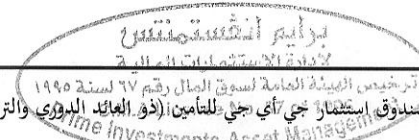 برايم انفستمنتس
لإدارة الاستثمارات المالية
ترخيص الهيئة العامة لسوق المال رقم ٦٧ لسنة ١٩٩٥
صندوق إستثمار جي أي جي للتأمين (ذو العائد الدوري والتر
Prime Investments Asset Management